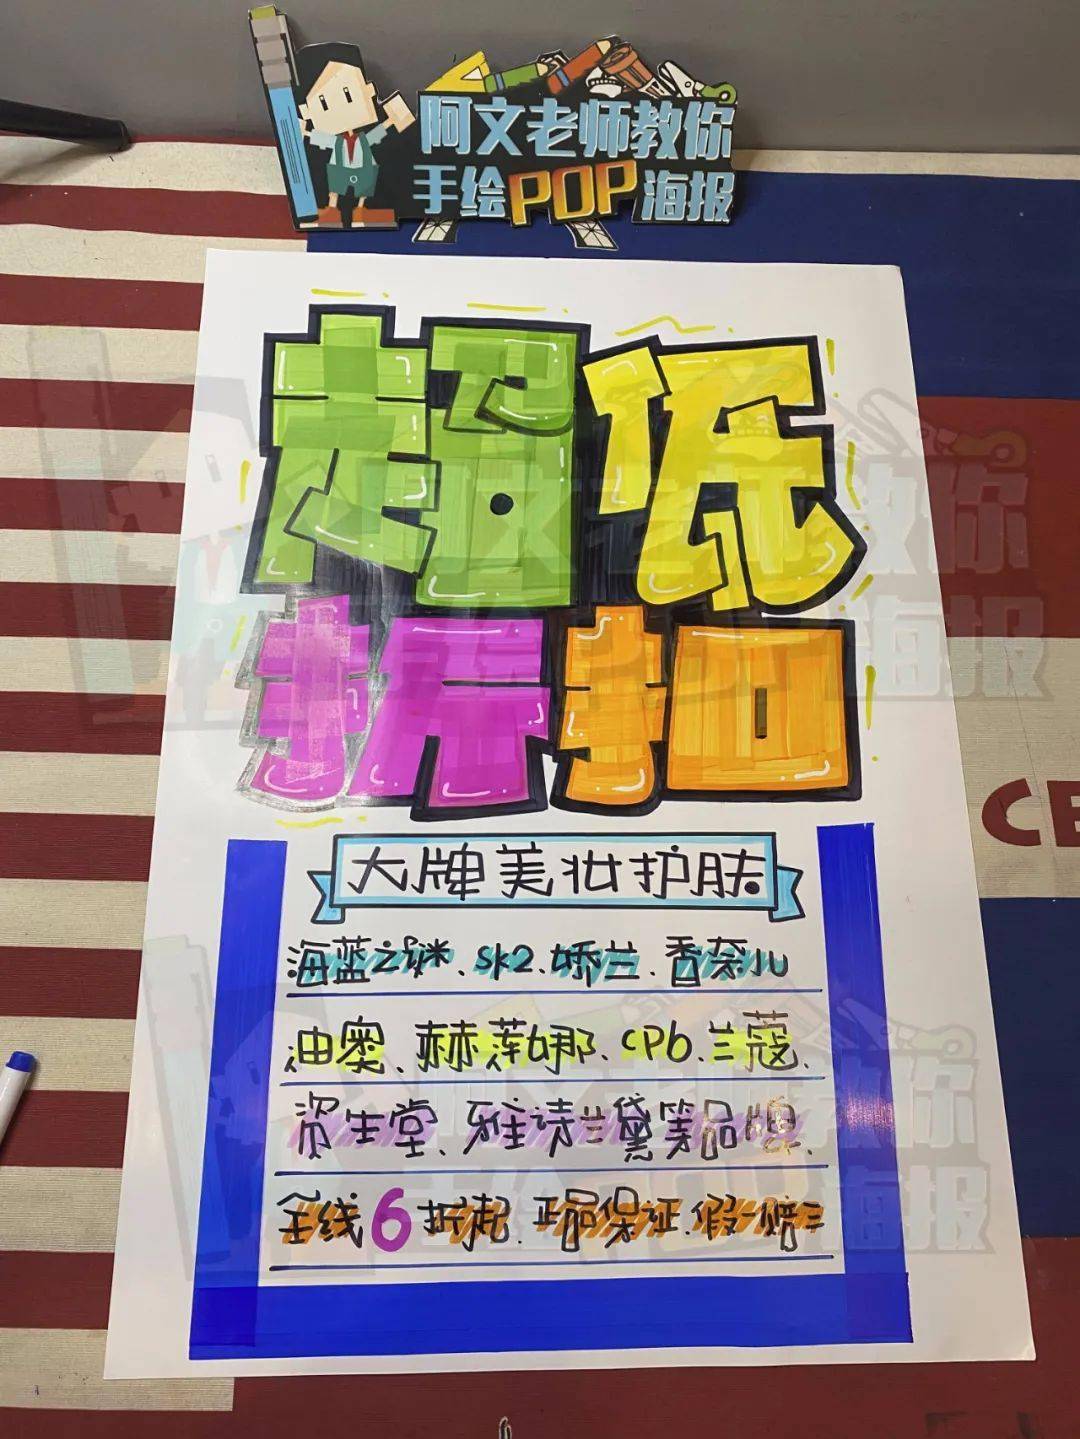 阿文老师教你
手绘POP海报
超低
折扣
大牌美妆护肤
海蓝之谜、SK2、娇兰、香奈儿
迪奥、赫莲娜、CPb、兰蔻、
资生堂、雅诗兰黛等品牌、
全线6折起、正品保证、假一赔三
CE